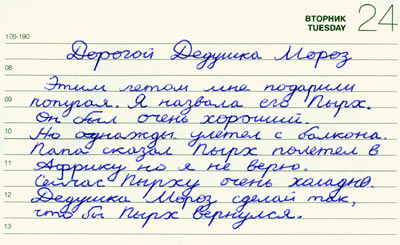 ВТОРНИК 24
TUESDAY
176-190
Дорогой Дедушка Мороз
08
Этим летом мне подарили
09 попугая. Я назвала его Пырх.
Он был очень хороший.
10 Но однажды улетел с балкона.
Папа сказал Пырх полетел в
11 Африку но я не верю.
Сейчас Пырху очень халадно.
12 Дедушка Мороз сделай так,
что бы Пырх вернулся.
13